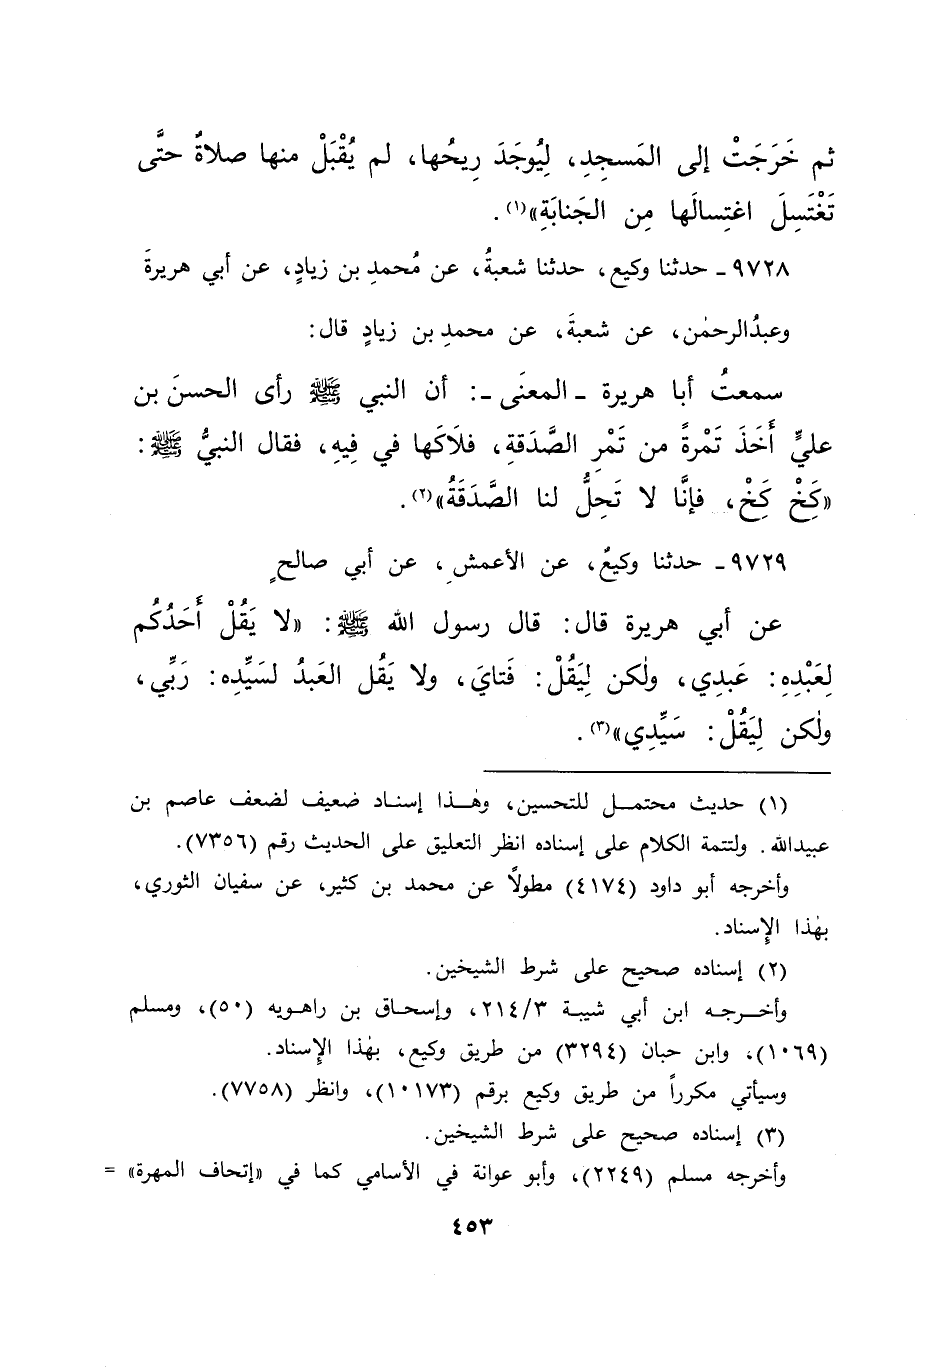 ثم خَرَجَتْ إلى المَسجِدِ، لِيُوجَدَ رِيحُها، لم يُقْبَلْ منها صلاةٌ حتَّى
تَغْتَسِلَ اغتِسالَها مِن الجَنابَةِ»(١).
٩٧٢٨ ـ حدثنا وكيع، حدثنا شعبةُ، عن مُحمدِ بن زيادٍ، عن أبي هريرةَ
وعبدُالرحمٰن، عن شعبةَ، عن محمدِ بن زيادٍ قال:
سمعتُ أبا هريرة ـ المعنَى ـ: أن النبي ﷺ رأى الحسنَ بن
عليٍّ أَخَذَ تَمْرةً من تَمْرِ الصَّدَقةِ، فلَاكَها في فِيهِ، فقال النبيُّ ﷺ:
«كَِخْ كَِخْ، فإنَّا لا تَحِلُّ لنا الصَّدَقَةُ»(٢).
٩٧٢٩ ـ حدثنا وكيعٌ، عن الأعمشِ، عن أبي صالحٍ
عن أبي هريرة قال: قال رسول الله ﷺ: «لا يَقُلْ أَحَدُكُم
لِعَبْدِهِ: عَبدِي، ولٰكن لِيَقُلْ: فَتايَ، ولا يَقُل العَبدُ لسَيِّدِه: رَبِّي،
ولٰكن لِيَقُلْ: سَيِّدِي»(٣).
(١) حديث محتمل للتحسين، وهٰذا إسناد ضعيف لضعف عاصم بن
عبيدالله. ولتتمة الكلام على إسناده انظر التعليق على الحديث رقم (٧٣٥٦).
وأخرجه أبو داود (٤١٧٤) مطولًا عن محمد بن كثير، عن سفيان الثوري،
بهٰذا الإِسناد.
(٢) إسناده صحيح على شرط الشيخين.
وأخرجه ابن أبي شيبة ٢١٤/٣، وإسحاق بن راهويه (٥٠)، ومسلم
(١٠٦٩)، وابن حبان (٣٢٩٤) من طريق وكيع، بهٰذا الإِسناد.
وسيأتي مكرراً من طريق وكيع برقم (١٠١٧٣)، وانظر (٧٧٥٨).
(٣) إسناده صحيح على شرط الشيخين.
وأخرجه مسلم (٢٢٤٩)، وأبو عوانة في الأسامي كما في «إتحاف المهرة» =
٤٥٣